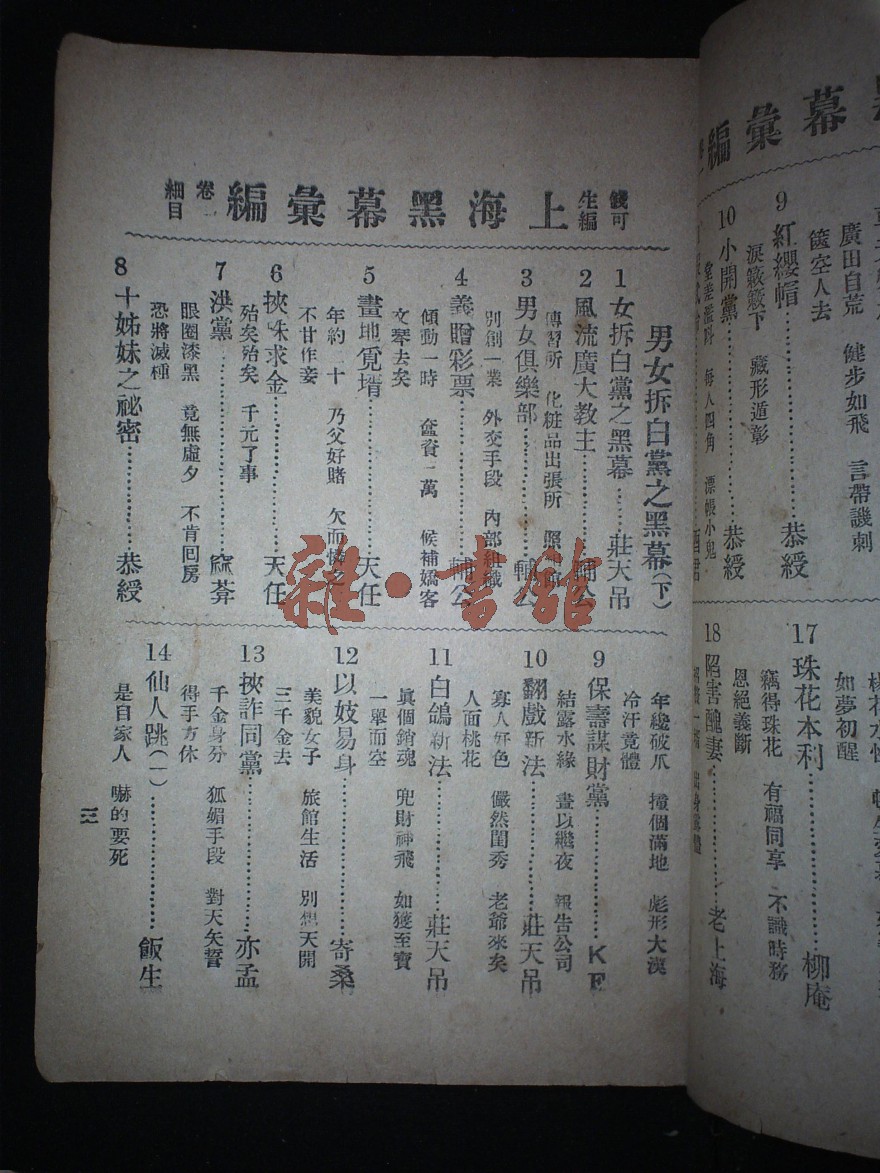 錢可生編
上海黑幕彙編
卷一細目
男女拆白黨之黑幕(下)
1 女拆白黨之黑幕………莊天吊
2 風流廣大教主………輔公
傳習所 化粧品出張所
3 男女俱樂部………輔公
別創一業 外交手段 內部組織
4 義贈彩票………輔公
傾動一時 奩資二萬 候補嬌客
文琴去矣
5 畫地覓壻………天任
年約二十 乃父好賭 欠而憐之
不甘作妾
6 挾硃求金………天任
殆矣殆矣 千元了事
7 洪黨………
眼圈漆黑 竟無虛夕 不肯囘房
恐將滅種
8 十姊妹之祕密………恭綬
年纔破爪 撞個滿地 彪形大漢
冷汗竟體
9 保壽謀財黨………KF
結露水緣 晝以繼夜 報告公司
寡人好色 儼然閨秀 老爺來矣
10 翻戲新法………莊天吊
人面桃花
11 白鴿新法………莊天吊
眞個銷魂 兜財神飛 如獲至寶
一舉而空
12 以妓易身………寄桑
美貌女子 旅館生活 別想天開
三千金去
13 挾詐同黨………亦孟
千金身分 狐媚手段 對天矢誓
得手方休
14 仙人跳(一)………飯生
是自家人 嚇的要死
三
幕彙編
廣田自荒 健步如飛 言帶譏刺
篋空人去
9 紅纓帽………恭綬
淚簌簌下 藏形遁彰
10 小開黨………恭綬
每人四角 漂帳小鬼
如夢初醒
17 珠花本利………柳庵
竊得珠花 有福同享 不識時務
恩絕義斷
18 陷害醜妻………老上海
雜·書館